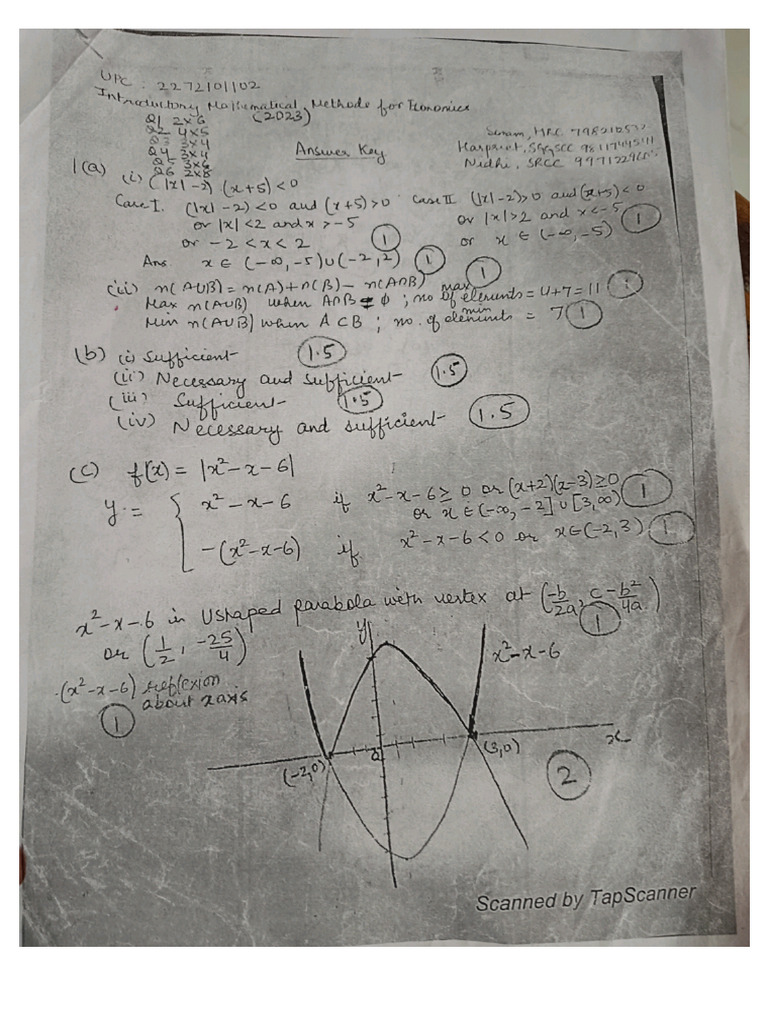 UPC : 2272101102
Introductory Mathematical Methods for Economics
(2023)
Q1 2x6
Q2 4x5
Q3 3x4
Q4 3x4
Q5 3x6
Q6 2x8
Answer Key
Sonam, MRC
Harpreet, SGGSCC
Nidhi, SRCC
1(a) (i) (|x| - 2) (x+5) < 0
Case I. (|x| - 2) < 0 and (x+5) > 0 Case II (|x| - 2) > 0 and (x+5) < 0
or |x| < 2 and x > -5 or |x| > 2 and x < -5
or -2 < x < 2 ① or x ∈ (-∞, -5) ①
Ans x ∈ (-∞, -5) ∪ (-2, 2) ①
(ii) n(A∪B) = n(A) + n(B) - n(A∩B) ①
Max n(A∪B) when A∩B = ϕ ; max no of elements = 4+7 = 11 ①
Min n(A∪B) when A ⊂ B ; min no. of elements = 7 ①
(b) (i) Sufficient 1.5
(ii) Necessary and sufficient 1.5
(iii) Sufficient 1.5
(iv) Necessary and sufficient 1.5
(c) f(x) = |x² - x - 6|
y = { x² - x - 6 if x² - x - 6 ≥ 0 or (x+2)(x-3) ≥ 0 ①
or x ∈ (-∞, -2] ∪ [3, ∞)
-(x² - x - 6) if x² - x - 6 < 0 or x ∈ (-2, 3) ①
x² - x - 6 is U shaped parabola with vertex at (-b/2a, c - b²/4a) ①
or (1/2, -25/4)
-(x² - x - 6) reflexion
about x axis
①
y
x² - x - 6
(-2,0)
0
(3,0)
x
②
Scanned by TapScanner